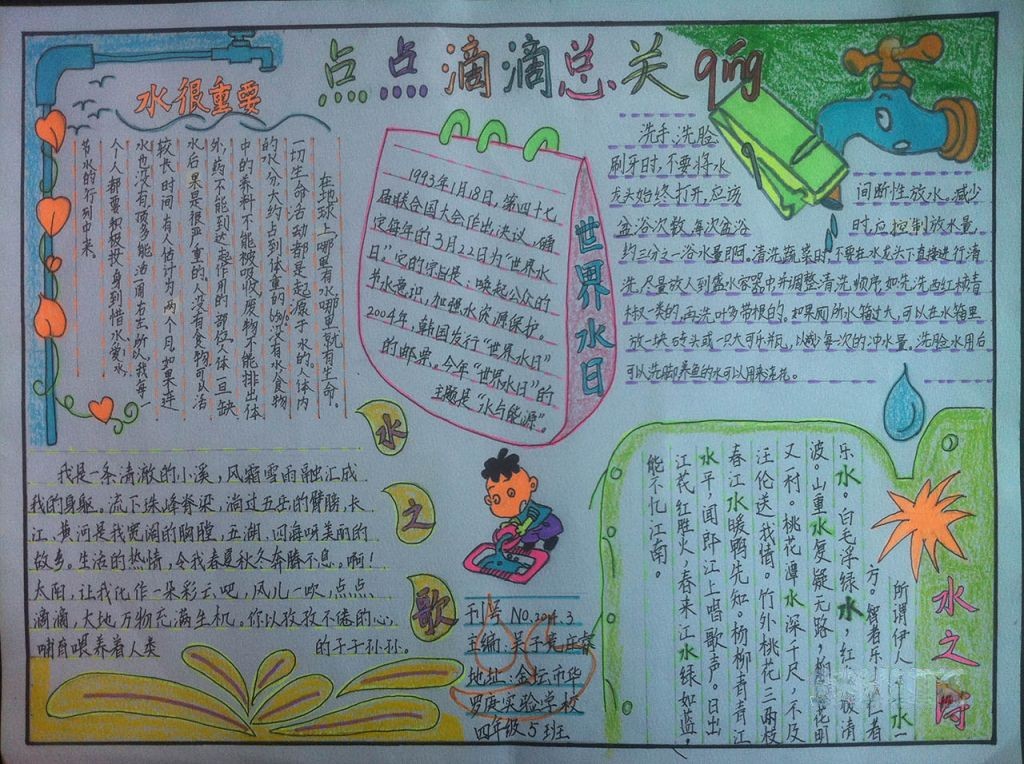 点点滴滴总关qing
水很重要
在地球上哪里有水哪里就有生命。
一切生命活动都是起源于水的。人体内
的水分,大约占到体重的65%。没有水食物
中的养料不能被吸收,废物不能排出体
外,药不能到达起作用的部位。人体一旦缺
水后果是很严重的。人没有食物可以活
较长时间有人估计为两个月,如果连
水也没有顶多能活一周左右。所以我每一
个人都要积极投身到惜水爱水,
节水的行列中来。
世界水日
1993年1月18日,第四十七
届联合国大会作出决议,确
定每年的3月22日为“世界水
日”。它的宗旨是:唤起公众的
节水意识,加强水资源保护。
2004年,韩国发行“世界水日”
的邮票。今年“世界水日”的
主题是“水与能源”。
洗手、洗脸、
刷牙时,不要将水
龙头始终打开,应该
间断性放水。减少
盆浴次数,每次盆浴
时应控制放水量,
约三分之一浴水量即可。清洗蔬菜时,不要在水龙头下直接进行清
洗,尽量放入到盛水容器中并调整清洗顺序如先洗西红柿青
椒一类的,再洗叶多带根的。如果厕所水箱过大,可以在水箱里
放一块砖头或一只大可乐瓶,以减少每一次的冲水量。洗脸水用后
可以洗脚养鱼的水可以用来浇花。
水之歌
我是一条清澈的小溪,风霜雪雨融汇成
我的身躯。流下珠峰脊梁,淌过五岳的臂膀,长
江、黄河是我宽阔的胸膛,五湖、四海呀美丽的
故乡。生活的热情,令我春夏秋冬奔腾不息。啊!
太阳,让我化作一朵彩云吧,风儿一吹,点点
滴滴,大地万物充满生机。你以孜孜不倦的心,
哺育喂养着人类
的子子孙孙。
刊号 NO.2014.3
主编:
地址:金坛市华
罗庚实验学校
四年级5班
水之诗
所谓伊人
水一
方。智者乐
者
乐水。白毛浮绿水,红
清
波。山重水复疑无路,柳
花明
又一村。桃花潭水深千尺,不及
汪伦送我情。竹外桃花三两枝
春江水暖鸭先知。杨柳青青江
水平,闻郎江上唱歌声。日出
江花红胜火,春来江水绿如蓝,
能不忆江南。